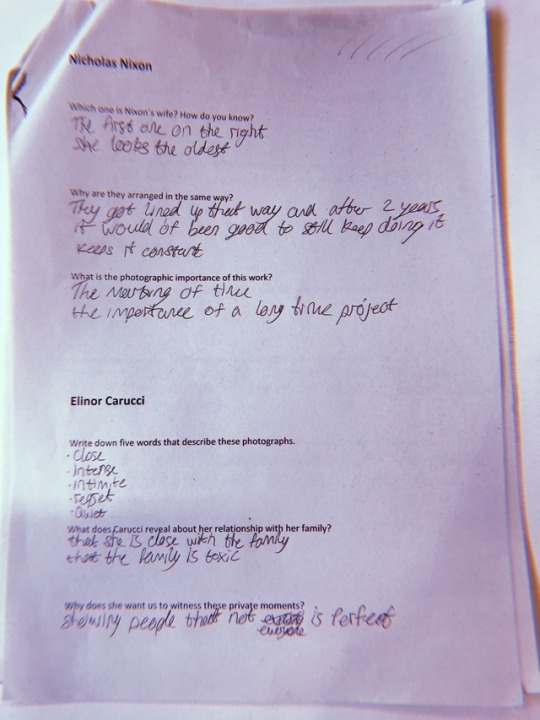 Nicholas Nixon
Which one is Nixon's wife? How do you know?
The first one on the right
she looks the oldest
Why are they arranged in the same way?
They got lined up that way and after 2 years
it would of been good to still keep doing it
keeps it constant
What is the photographic importance of this work?
The Marking of time
the importance of a long time project
Elinor Carucci
Write down five words that describe these photographs.
·Close
·Intense
·intimite
·regret
·Quiet
What does Carucci reveal about her relationship with her family?
that she is close with the family
that the family is toxic
Why does she want us to witness these private moments?
showing people that not everyone is Perfect